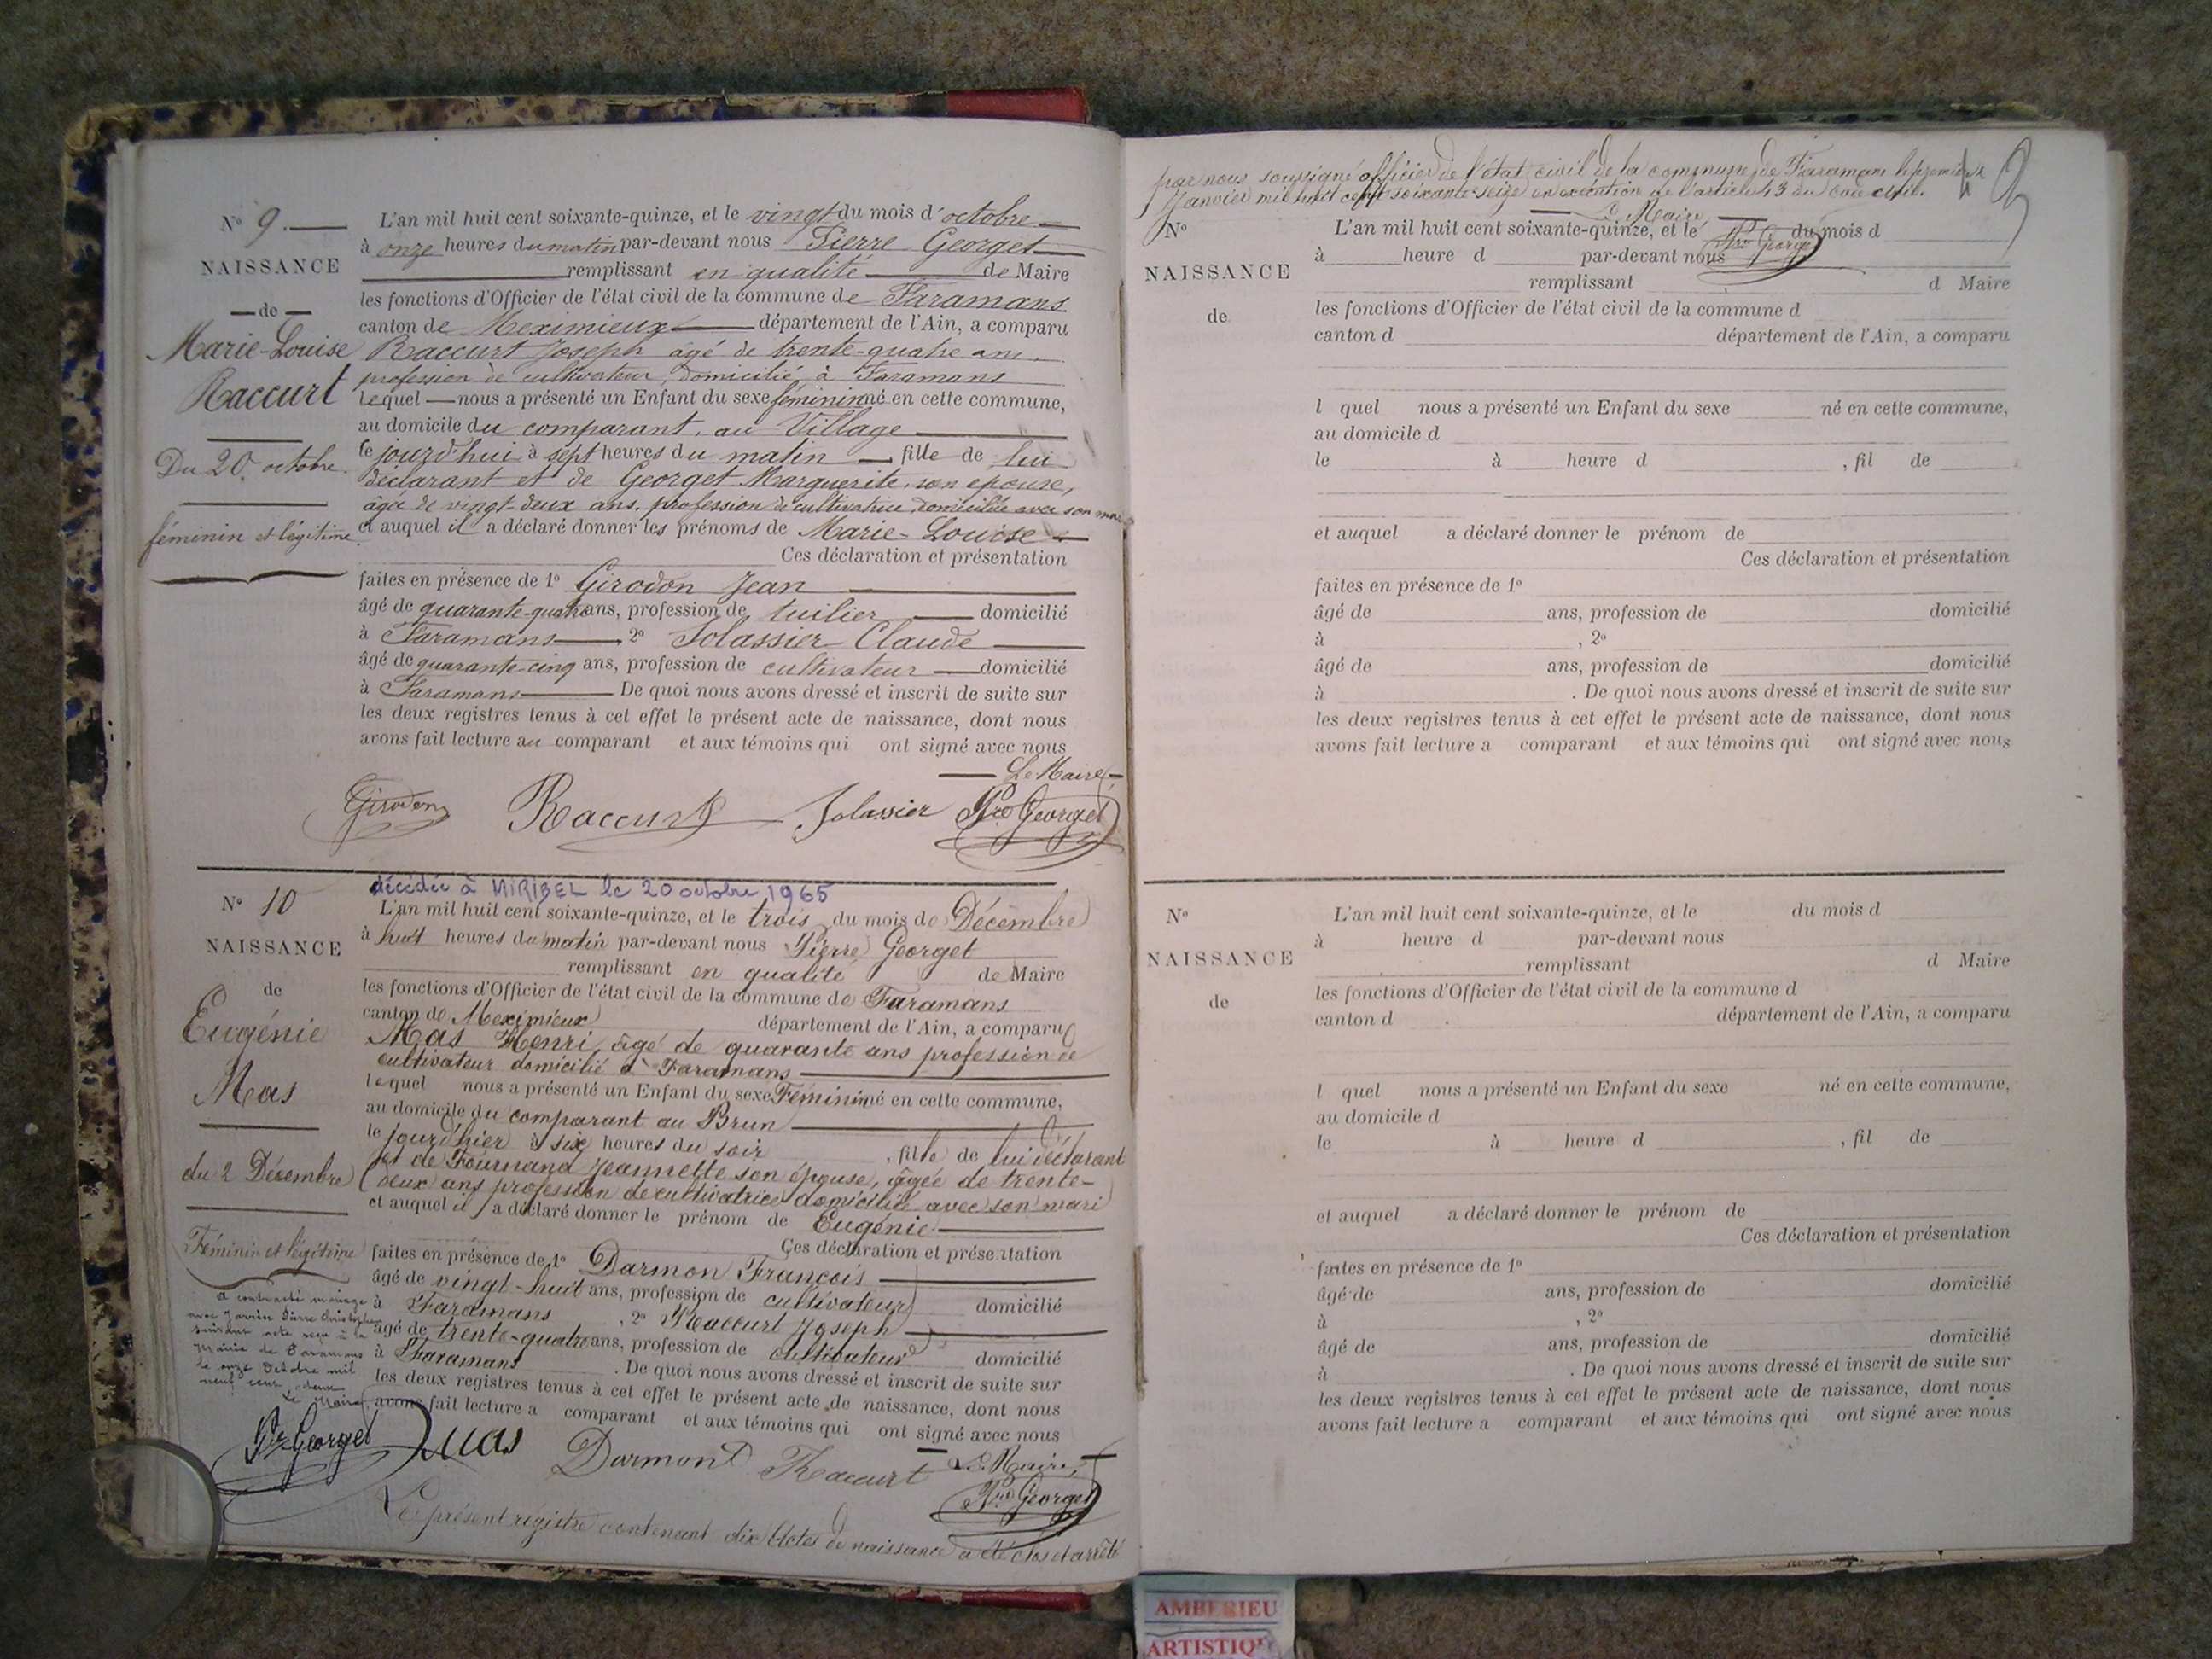 N° 9.
NAISSANCE
de
Marie-Louise
Raccurt
Du 20 octobre
féminin et légitime
L'an mil huit cent soixante-quinze, et le vingt du mois d'octobre
à onze heures du matin par-devant nous Pierre Georget
remplissant en qualité de Maire
les fonctions d'Officier de l'état civil de la commune de Faramans
canton de Meximieux département de l'Ain, a comparu
Raccurt Joseph âgé de trente-quatre ans.
profession de cultivateur, domicilié à Faramans
lequel nous a présenté un Enfant du sexe féminin né en cette commune,
au domicile du comparant, au Village
ce jourd'hui à sept heures du matin fille de lui
déclarant et de Georget Marguerite, son epouse,
âgée de vingt-deux ans, profession de cultivatrice, domiciliée avec son mari
et auquel il a déclaré donner les prénoms de Marie-Louise
Ces déclaration et présentation
faites en présence de 1° Girodon Jean
âgé de quarante-quatre ans, profession de tuilier domicilié
à Faramans 2° Jolassier Claude
âgé de quarante-cinq ans, profession de cultivateur domicilié
à Faramans De quoi nous avons dressé et inscrit de suite sur
les deux registres tenus à cet effet le présent acte de naissance, dont nous
avons fait lecture au comparant et aux témoins qui ont signé avec nous
Le Maire
Girodon Raccurt Jolassier Pre Georget
décédée à MIRIBEL le 20 octobre 1965
N° 10
NAISSANCE
de
Eugénie
Mas
du 2 Décembre
Féminin et légitime
a contracté mariage
avec Pierre
suivant acte reçu à la
Mairie de Faramans
le onze Octobre mil
neuf cent deux
Le Maire
Pre Georget
L'an mil huit cent soixante-quinze, et le trois du mois de Décembre
à huit heures du matin par-devant nous Pierre Georget
remplissant en qualité de Maire
les fonctions d'Officier de l'état civil de la commune de Faramans
canton de Meximieux département de l'Ain, a comparu
Mas Henri, âgé de quarante ans profession de
cultivateur domicilié à Faramans
lequel nous a présenté un Enfant du sexe Féminin né en cette commune,
au domicile du comparant au Brun
le jourd'hier à six heures du soir, fille de lui déclarant
et de Fournand Jeannette son épouse, âgée de trente-
deux ans profession de cultivatrice domicilié avec son mari
et auquel il a déclaré donner le prénom de Eugénie
Ces déclaration et présentation
faites en présence de 1° Darmon François
âgé de vingt-huit ans, profession de cultivateur domicilié
à Faramans, 2° Raccurt Joseph
âgé de trente-quatre ans, profession de cultivateur domicilié
à Faramans. De quoi nous avons dressé et inscrit de suite sur
les deux registres tenus à cet effet le présent acte de naissance, dont nous
avons fait lecture a comparant et aux témoins qui ont signé avec nous
Mas Darmont Raccurt Le Maire,
Pre Georget
Le présent registre contenant dix Actes de naissance a été clos et arrêté
par nous soussigné officier de l'état civil de la commune de Faramans le premier
Janvier mil huit cent soixante-seize en exécution de l'article 43 du code civil.
Le Maire
Pre Georget
N°
NAISSANCE
de
L'an mil huit cent soixante-quinze, et le du mois d
à heure d par-devant nous
remplissant d Maire
les fonctions d'Officier de l'état civil de la commune d
canton d département de l'Ain, a comparu
l quel nous a présenté un Enfant du sexe né en cette commune,
au domicile d
le à heure d , fil de
et auquel a déclaré donner le prénom de
Ces déclaration et présentation
faites en présence de 1°
âgé de ans, profession de domicilié
à , 2°
âgé de ans, profession de domicilié
à . De quoi nous avons dressé et inscrit de suite sur
les deux registres tenus à cet effet le présent acte de naissance, dont nous
avons fait lecture a comparant et aux témoins qui ont signé avec nous
N°
NAISSANCE
de
L'an mil huit cent soixante-quinze, et le du mois d
à heure d par-devant nous
remplissant d Maire
les fonctions d'Officier de l'état civil de la commune d
canton d département de l'Ain, a comparu
l quel nous a présenté un Enfant du sexe né en cette commune,
au domicile d
le à heure d , fil de
et auquel a déclaré donner le prénom de
Ces déclaration et présentation
faites en présence de 1°
âgé de ans, profession de domicilié
à , 2°
âgé de ans, profession de domicilié
à . De quoi nous avons dressé et inscrit de suite sur
les deux registres tenus à cet effet le présent acte de naissance, dont nous
avons fait lecture a comparant et aux témoins qui ont signé avec nous
AMBERIEU
ARTISTIQ